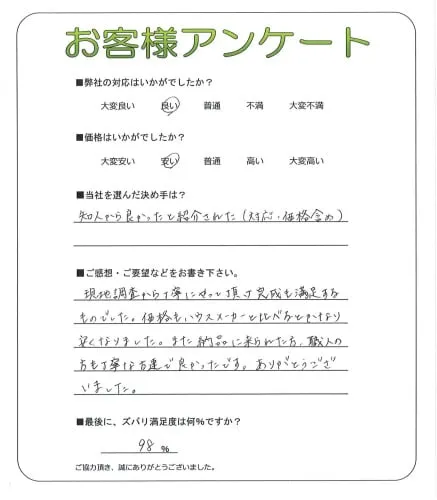 お客様アンケート
■弊社の対応はいかがでしたか?
大変良い 良い 普通 不満 大変不満
■価格はいかがでしたか?
大変安い 安い 普通 高い 大変高い
■当社を選んだ決め手は?
知人から良かったと紹介された(対応・価格含め)
■ご感想・ご要望などをお書き下さい。
現地調査から丁寧にやって頂き完成も満足する
ものでした。価格もハウスメーカーと比べるとかなり
安くなりました。また納品に来られた方、職人の
方も丁寧な方達で良かったです。ありがとうござ
いました。
■最後に、ズバリ満足度は何%ですか?
98 %
ご協力頂き、誠にありがとうございました。